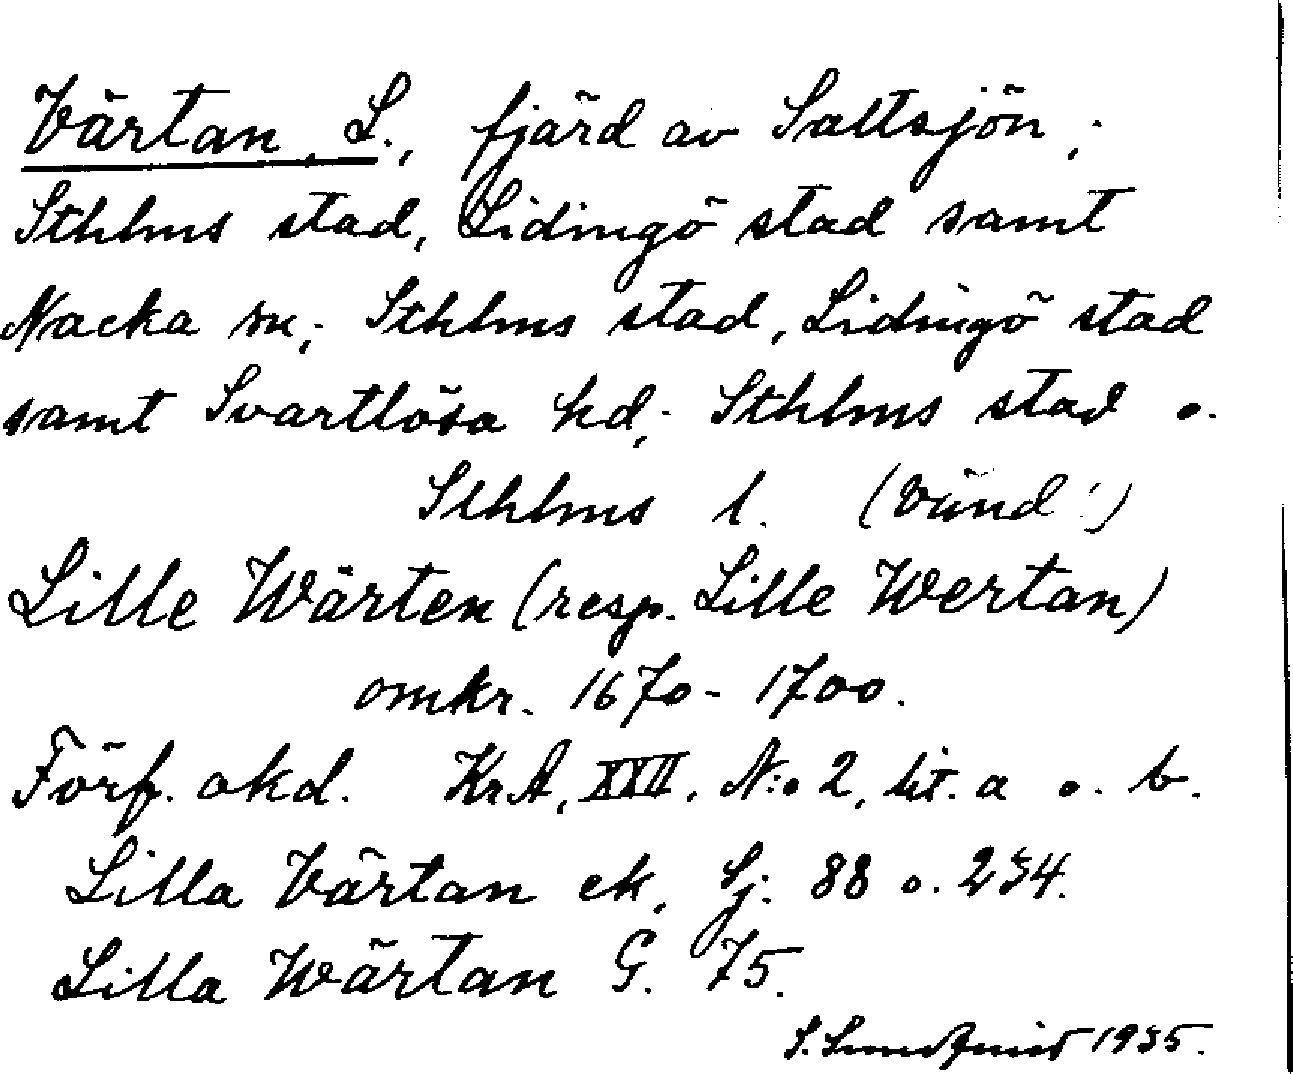 Värtan, L., fjärd av Saltsjön;
Sthlms stad, Lidingö stad samt
Nacka sn; Sthlms stad, Lidingö stad
samt Svartlösa hd; Sthlms stad o.
Sthlms l.
Lille Wärten (resp. Lille Wertan)
omkr. 1670-1700.
Förf. okd. KrA, XXII, N:o 2, lit. a o. b.
Lilla Värtan ek, Sj. 88 o. 234.
Lilla Wärtan G. 75.
S. Lundquist 1935.